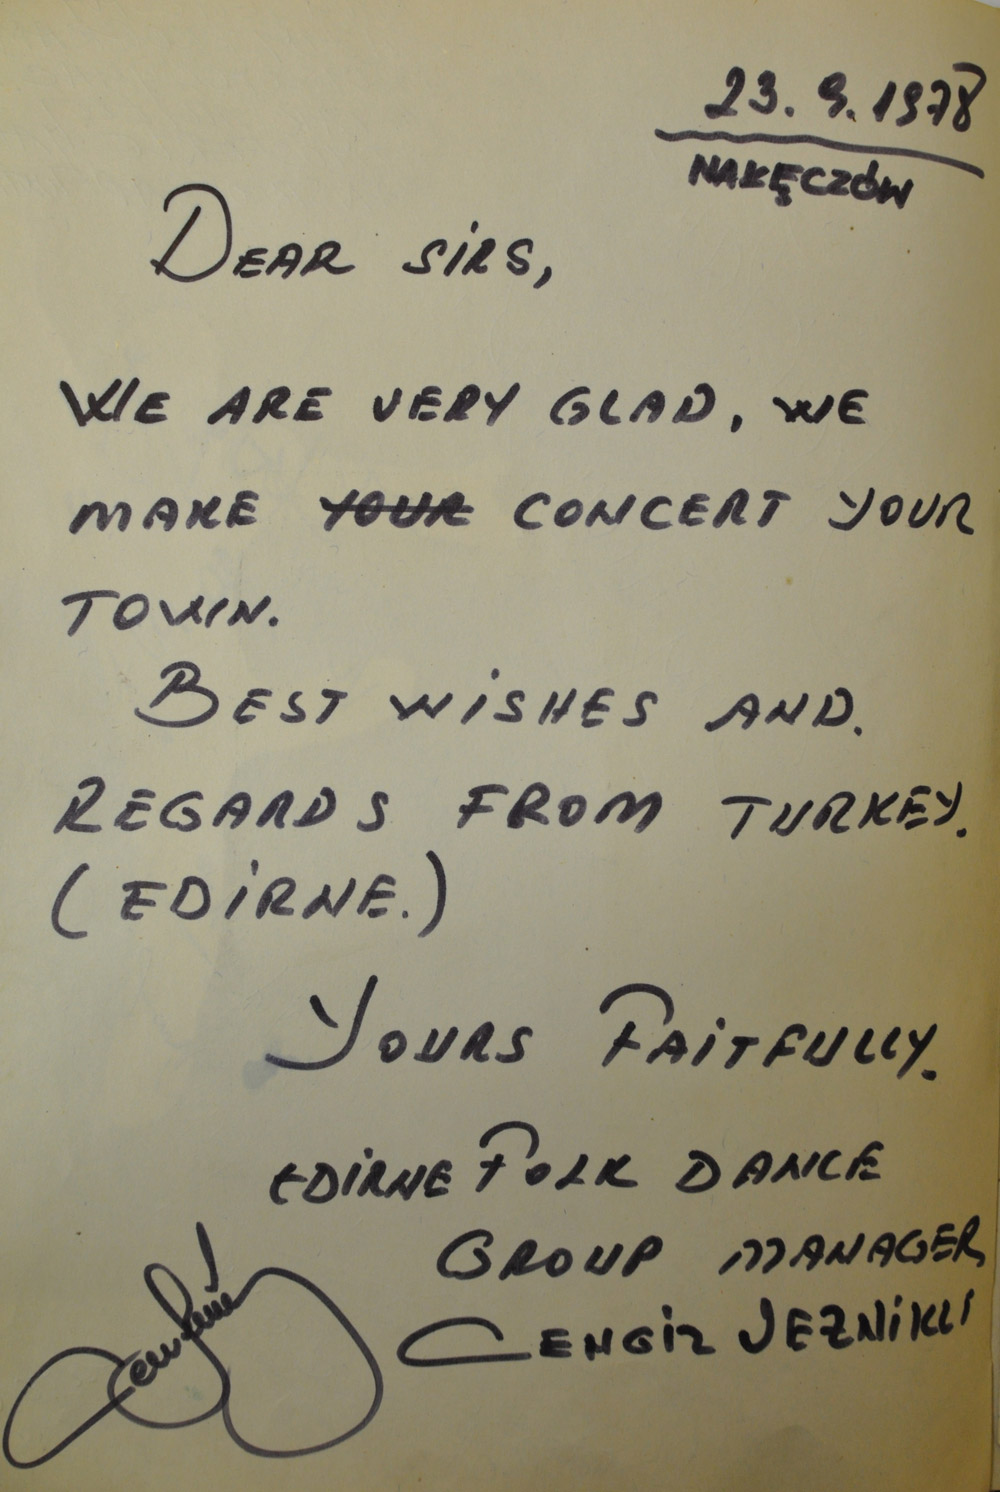 23.9.1978
NAKĘCZÓW
DEAR SiRS,
WE ARE VERY GLAD, WE
MAKE YOUR CONCERT YOUR
TOWN.
BEST WiSHES AND.
REGARDS FROM TURKEY.
(EDiRNE.)
YOURS FAiTFULLY.
EDiRNE FOLK DANCE
GROUP MANAGER
CENGiZ VEZNiKLi